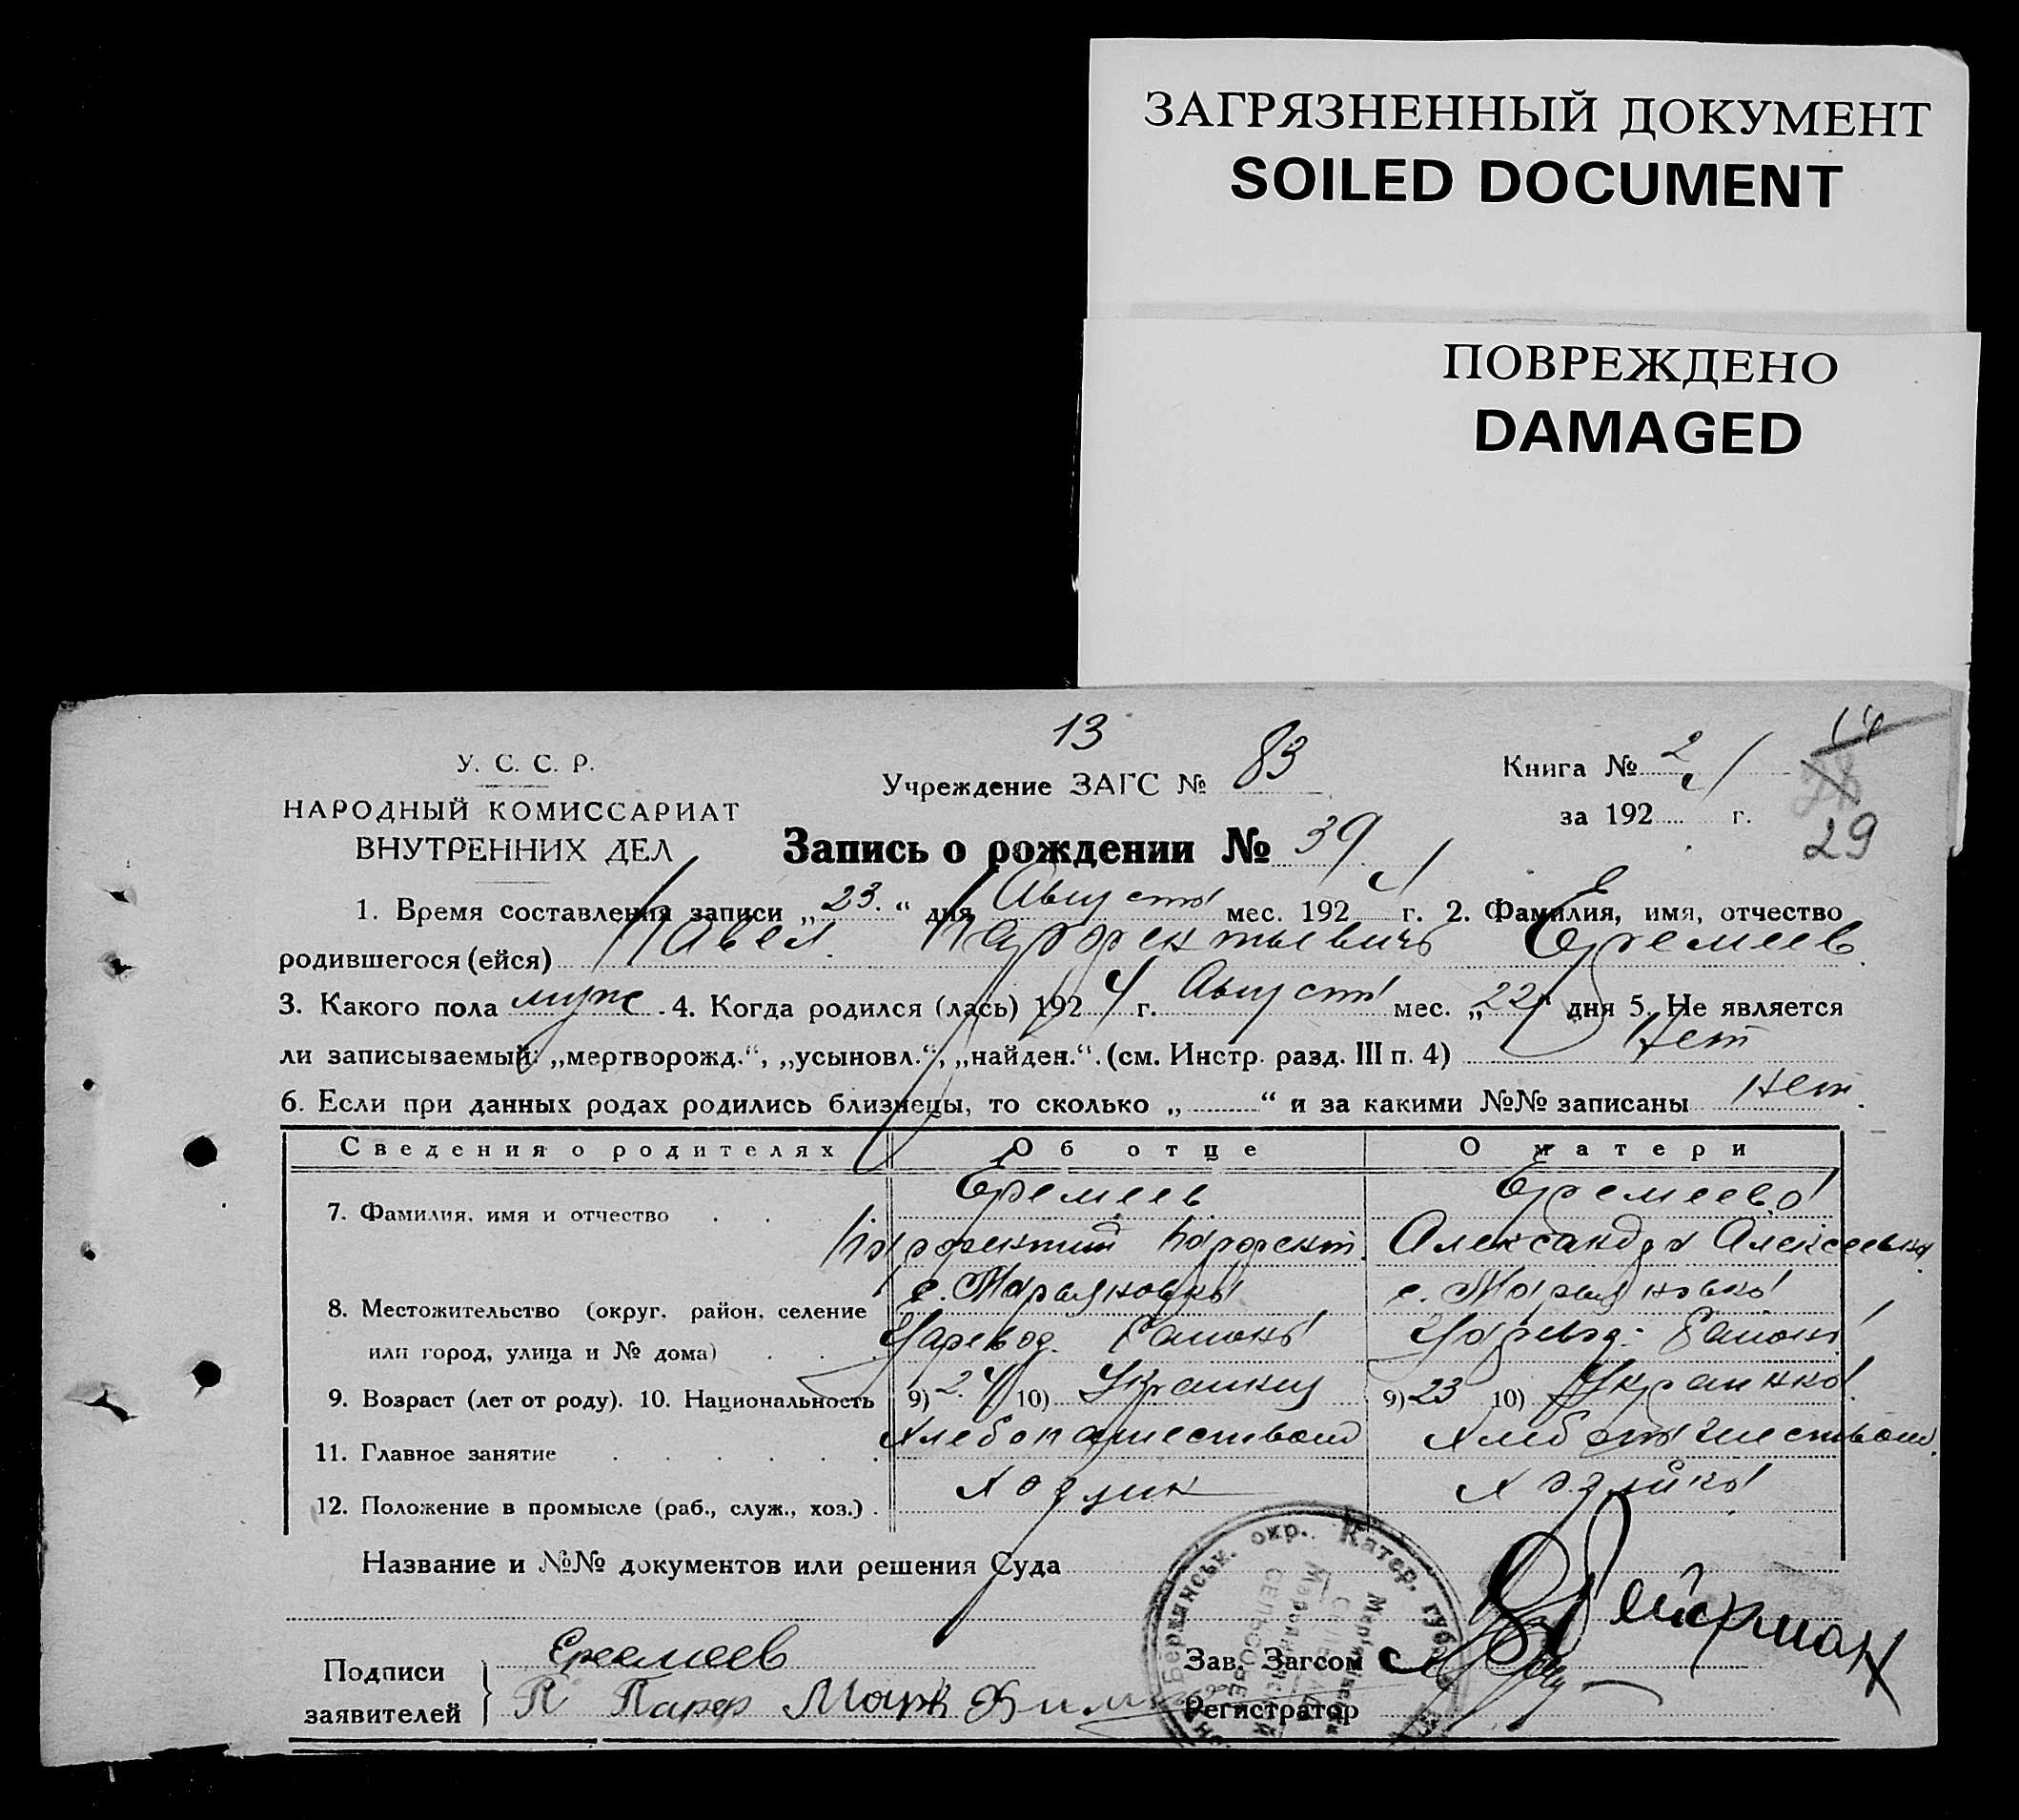 ЗАГРЯЗНЕННЫЙ ДОКУМЕНТ
SOILED DOCUMENT
ПОВРЕЖДЕНО
DAMAGED
13
У. С. С. Р.
НАРОДНЫЙ КОМИССАРИАТ
ВНУТРЕННИХ ДЕЛ
Учреждение ЗАГС № 83
Книга № 2
за 1924 г.
29
Запись о рождении № 39
1. Время составления записи „23.“ дня Августа мес. 1924 г. 2. Фамилия, имя, отчество
родившегося (ейся) Павел Парфентьевичъ Еремеев
3. Какого пола муж. 4. Когда родился (лась) 1924 г. Августа мес. „22“ дня 5. Не является
ли записываемый: „мертворожд.“, „усыновл.“, „найден.“. (см. Инстр. разд. III п. 4) Нет
6. Если при данных родах родились близнецы, то сколько „ “ и за какими №№ записаны Нет.
Сведения о родителях Об отце О матери
7. Фамилия, имя и отчество Еремеев Еремеева
Александра Алексеевна
с. Марьяновка с. Марьяновка
8. Местожительство (округ, район, селение
или город, улица и № дома)
9. Возраст (лет от роду). 10. Национальность 9) 24 10) 9) 23 10) Украинка
11. Главное занятие Хлебопашеством
12. Положение в промысле (раб., служ., хоз.)
Название и №№ документов или решения Суда
Бердянськ. окр. Катер. губ.
Подписи
заявителей
Еремеев
П Парф Марк
Зав. Загсом
Регистратор